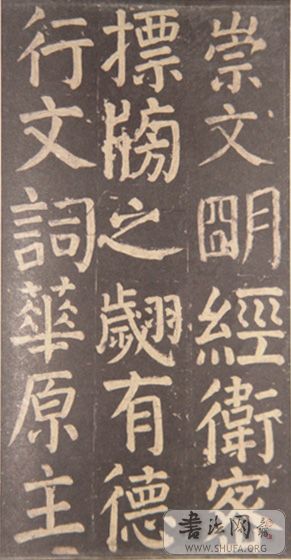 崇文明經衛
摽牓之翽有德
行文詞華原主
书法网
WWW.SHUFA.ORG